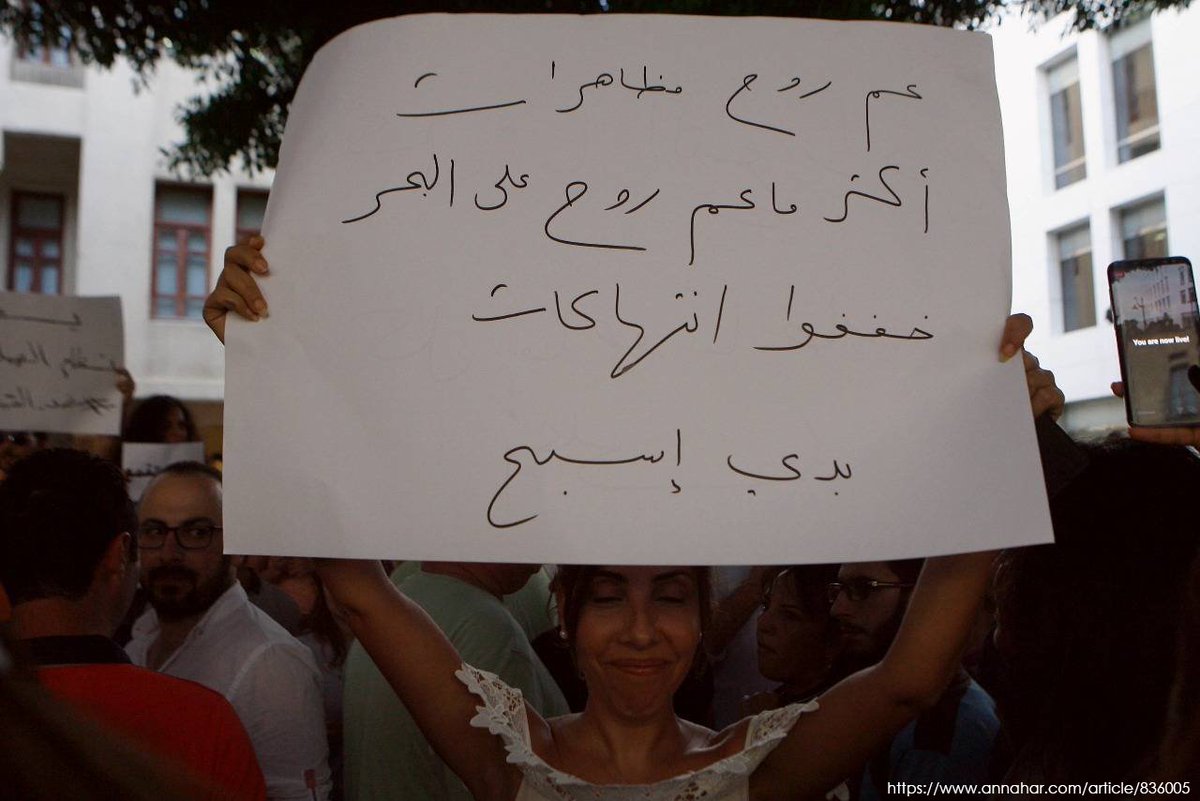 عم روح مظاهرات
أكتر ما عم روح على البحر
خففوا انتهاكات
بدي إسبح
You are now live!
https://www.annahar.com/article/836005